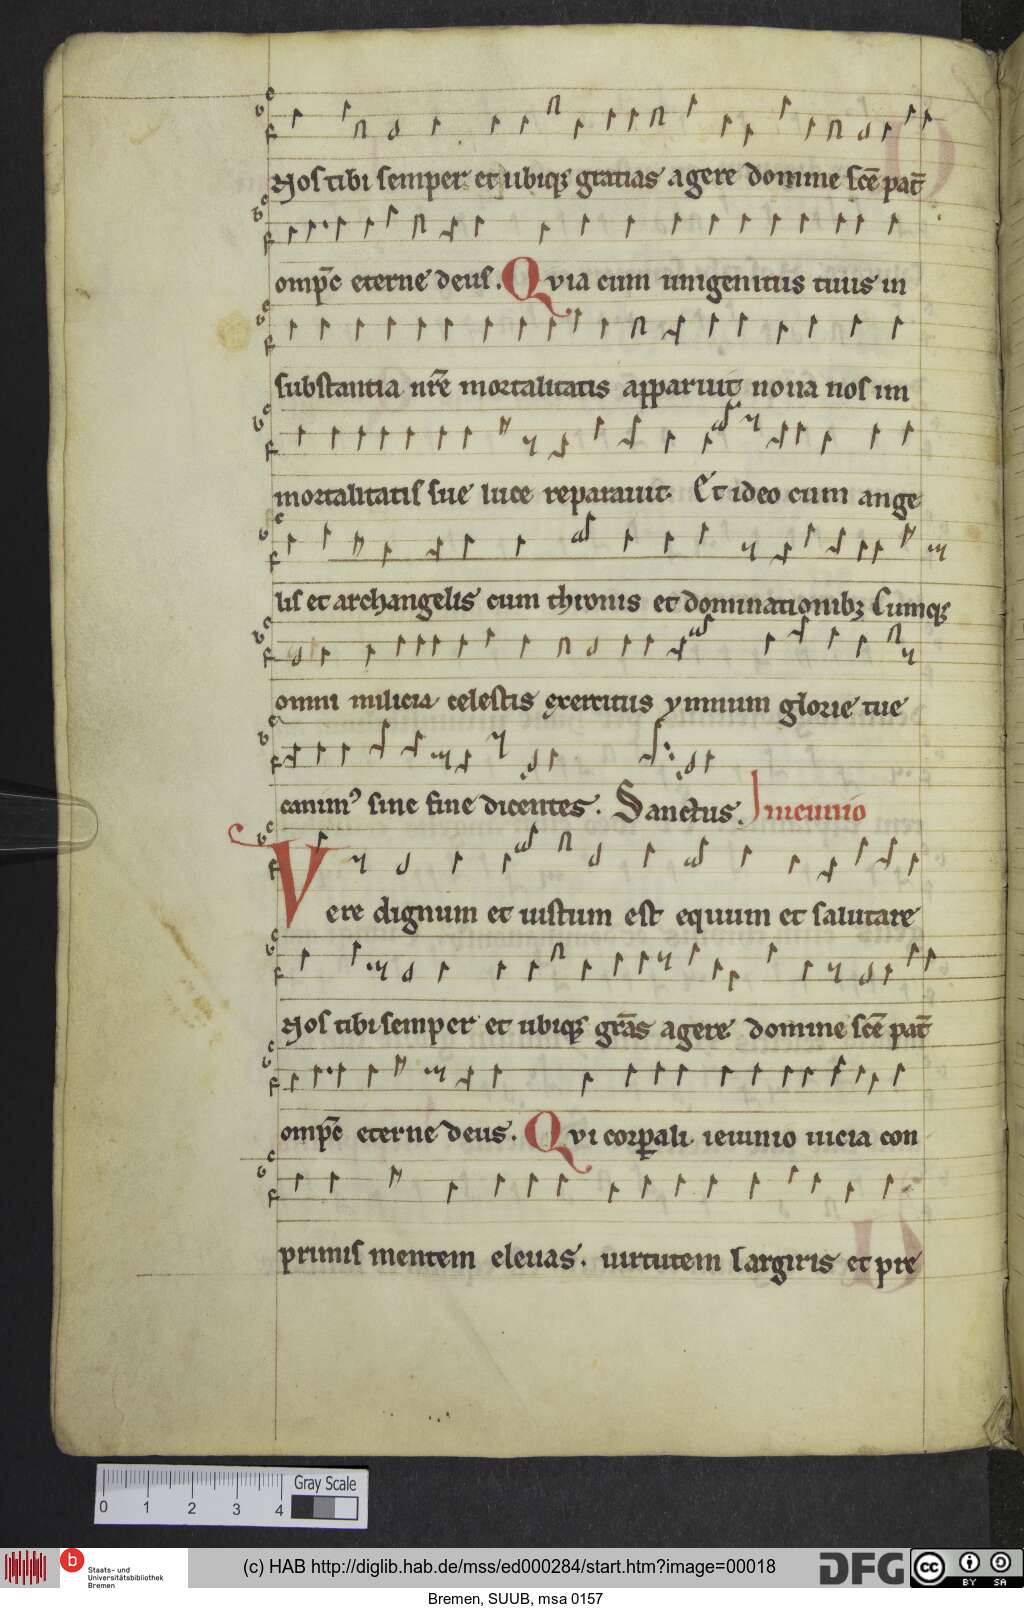 Nos tibi semper et ubiq; gratias agere domine scē pat̄
omp̄s eterne deus. Qvia cum unigenitus tuus in
substantia nr̄e mortalitatis apparuit noua nos im
mortalitatis sue luce reparauit. Et ideo cum ange
lis et archangelis cum thronis et dominationibꝫ Cumq;
omni milicia celestis exercitus ymnum glorie tue
canimꝰ sine fine dicentes. Sanctus. Jn ieiunio
Vere dignum et iustum est equum et salutare
Nos tibi semper et ubiq; grās agere domine scē pat̄
omp̄s eterne deus. Qvi corꝑali ieiunio uicia con
primis mentem eleuas. uirtutem largiris et pre
0 1 2 3 4
Gray Scale
Staats- und
Universitätsbibliothek
Bremen
(c) HAB http://diglib.hab.de/mss/ed000284/start.htm?image=00018
DFG
cc BY SA
Bremen, SUUB, msa 0157